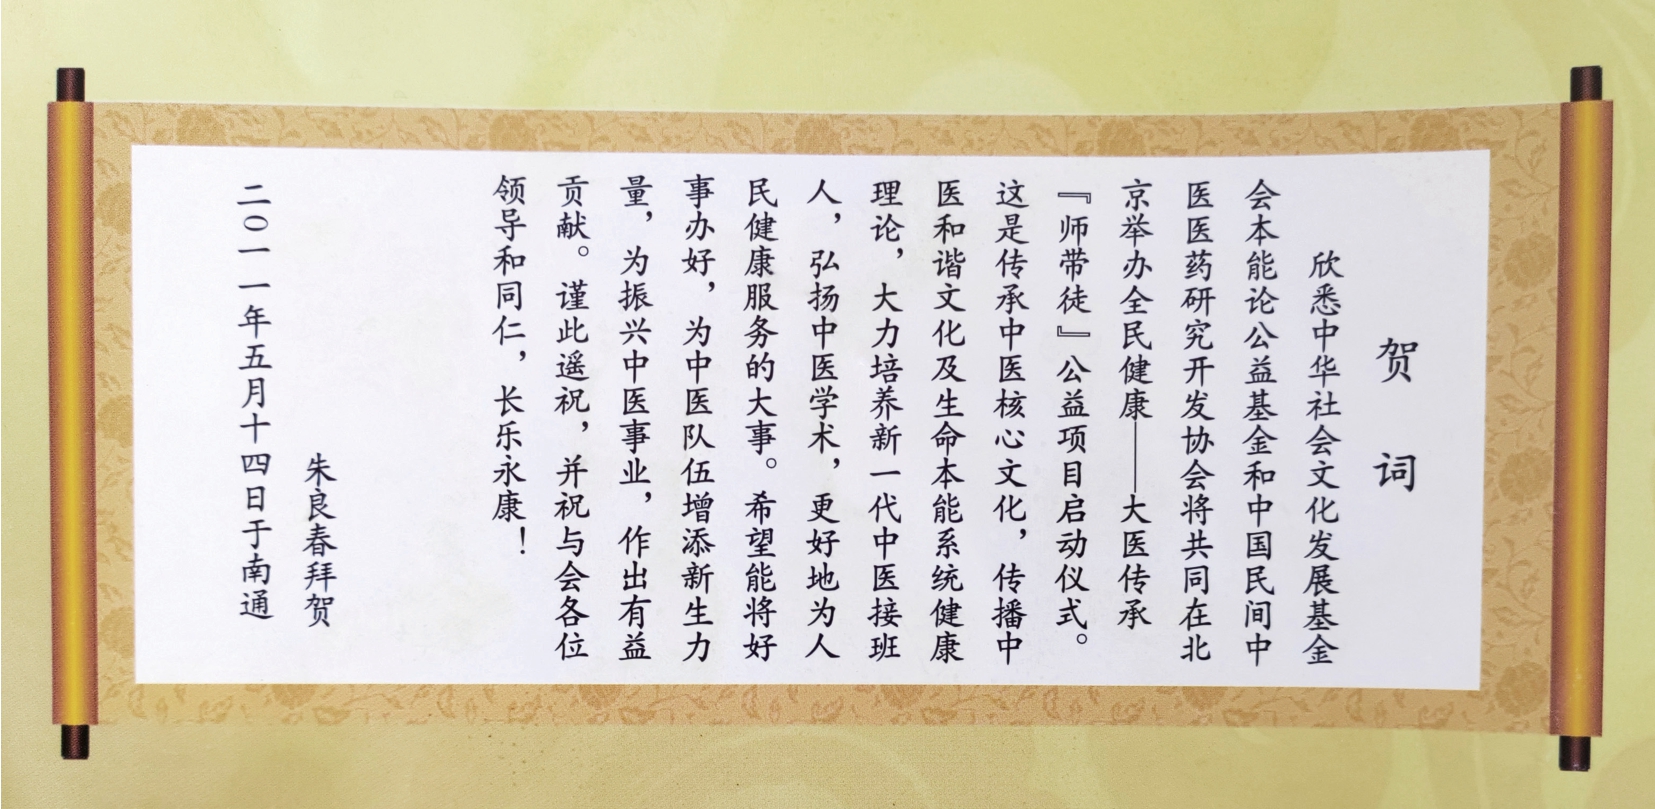 贺词
欣悉中华社会文化发展基金
会本能论公益基金和中国民间中
医医药研究开发协会将共同在北
京举办全民健康——大医传承
『师带徒』公益项目启动仪式。
这是传承中医核心文化，传播中
医和谐文化及生命本能系统健康
理论，大力培养新一代中医接班
人，弘扬中医学术，更好地为人
民健康服务的大事。希望能将好
事办好，为中医队伍增添新生力
量，为振兴中医事业，作出有益
贡献。谨此遥祝，并祝与会各位
领导和同仁，长乐永康！
朱良春拜贺
二〇一一年五月十四日于南通